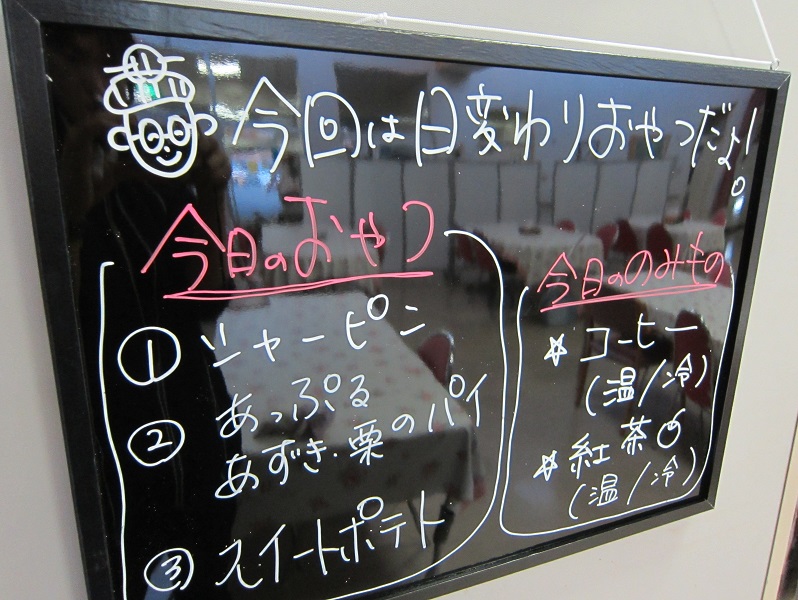 今回は日変わりおやつだよ!
今日のおやつ
① シャーピン
② あっぷる
あずき・栗のパイ
③ スイートポテト
今日ののみもの
☆ コーヒー
(温/冷)
☆ 紅茶
(温/冷)